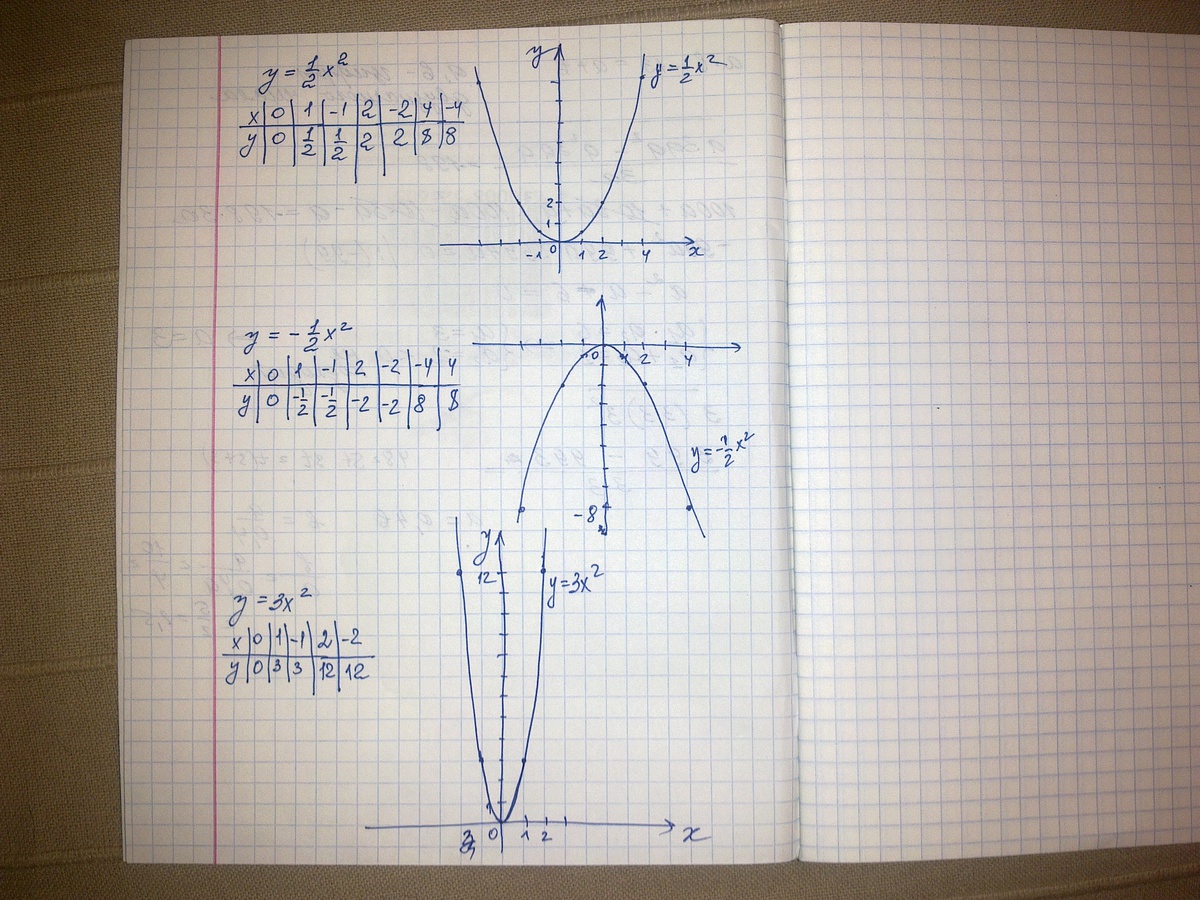 y = 1/2 x²
x 0 1 -1 2 -2 4 -4
y 0 1/2 1/2 2 2 8 8
y
y = 1/2 x²
2
1
-1 0 1 2 4 x
y = -1/2 x²
x 0 1 -1 2 -2 -4 4
y 0 -1/2 -1/2 -2 -2 8 8
0 2 4
y = -1/2 x²
-8
y = 3x²
x 0 1 -1 2 -2
y 0 3 3 12 12
y
12
y = 3x²
1
0 1 2 x